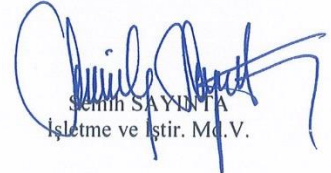 Semih SAYINTA
İşletme ve İştir. Md.V.